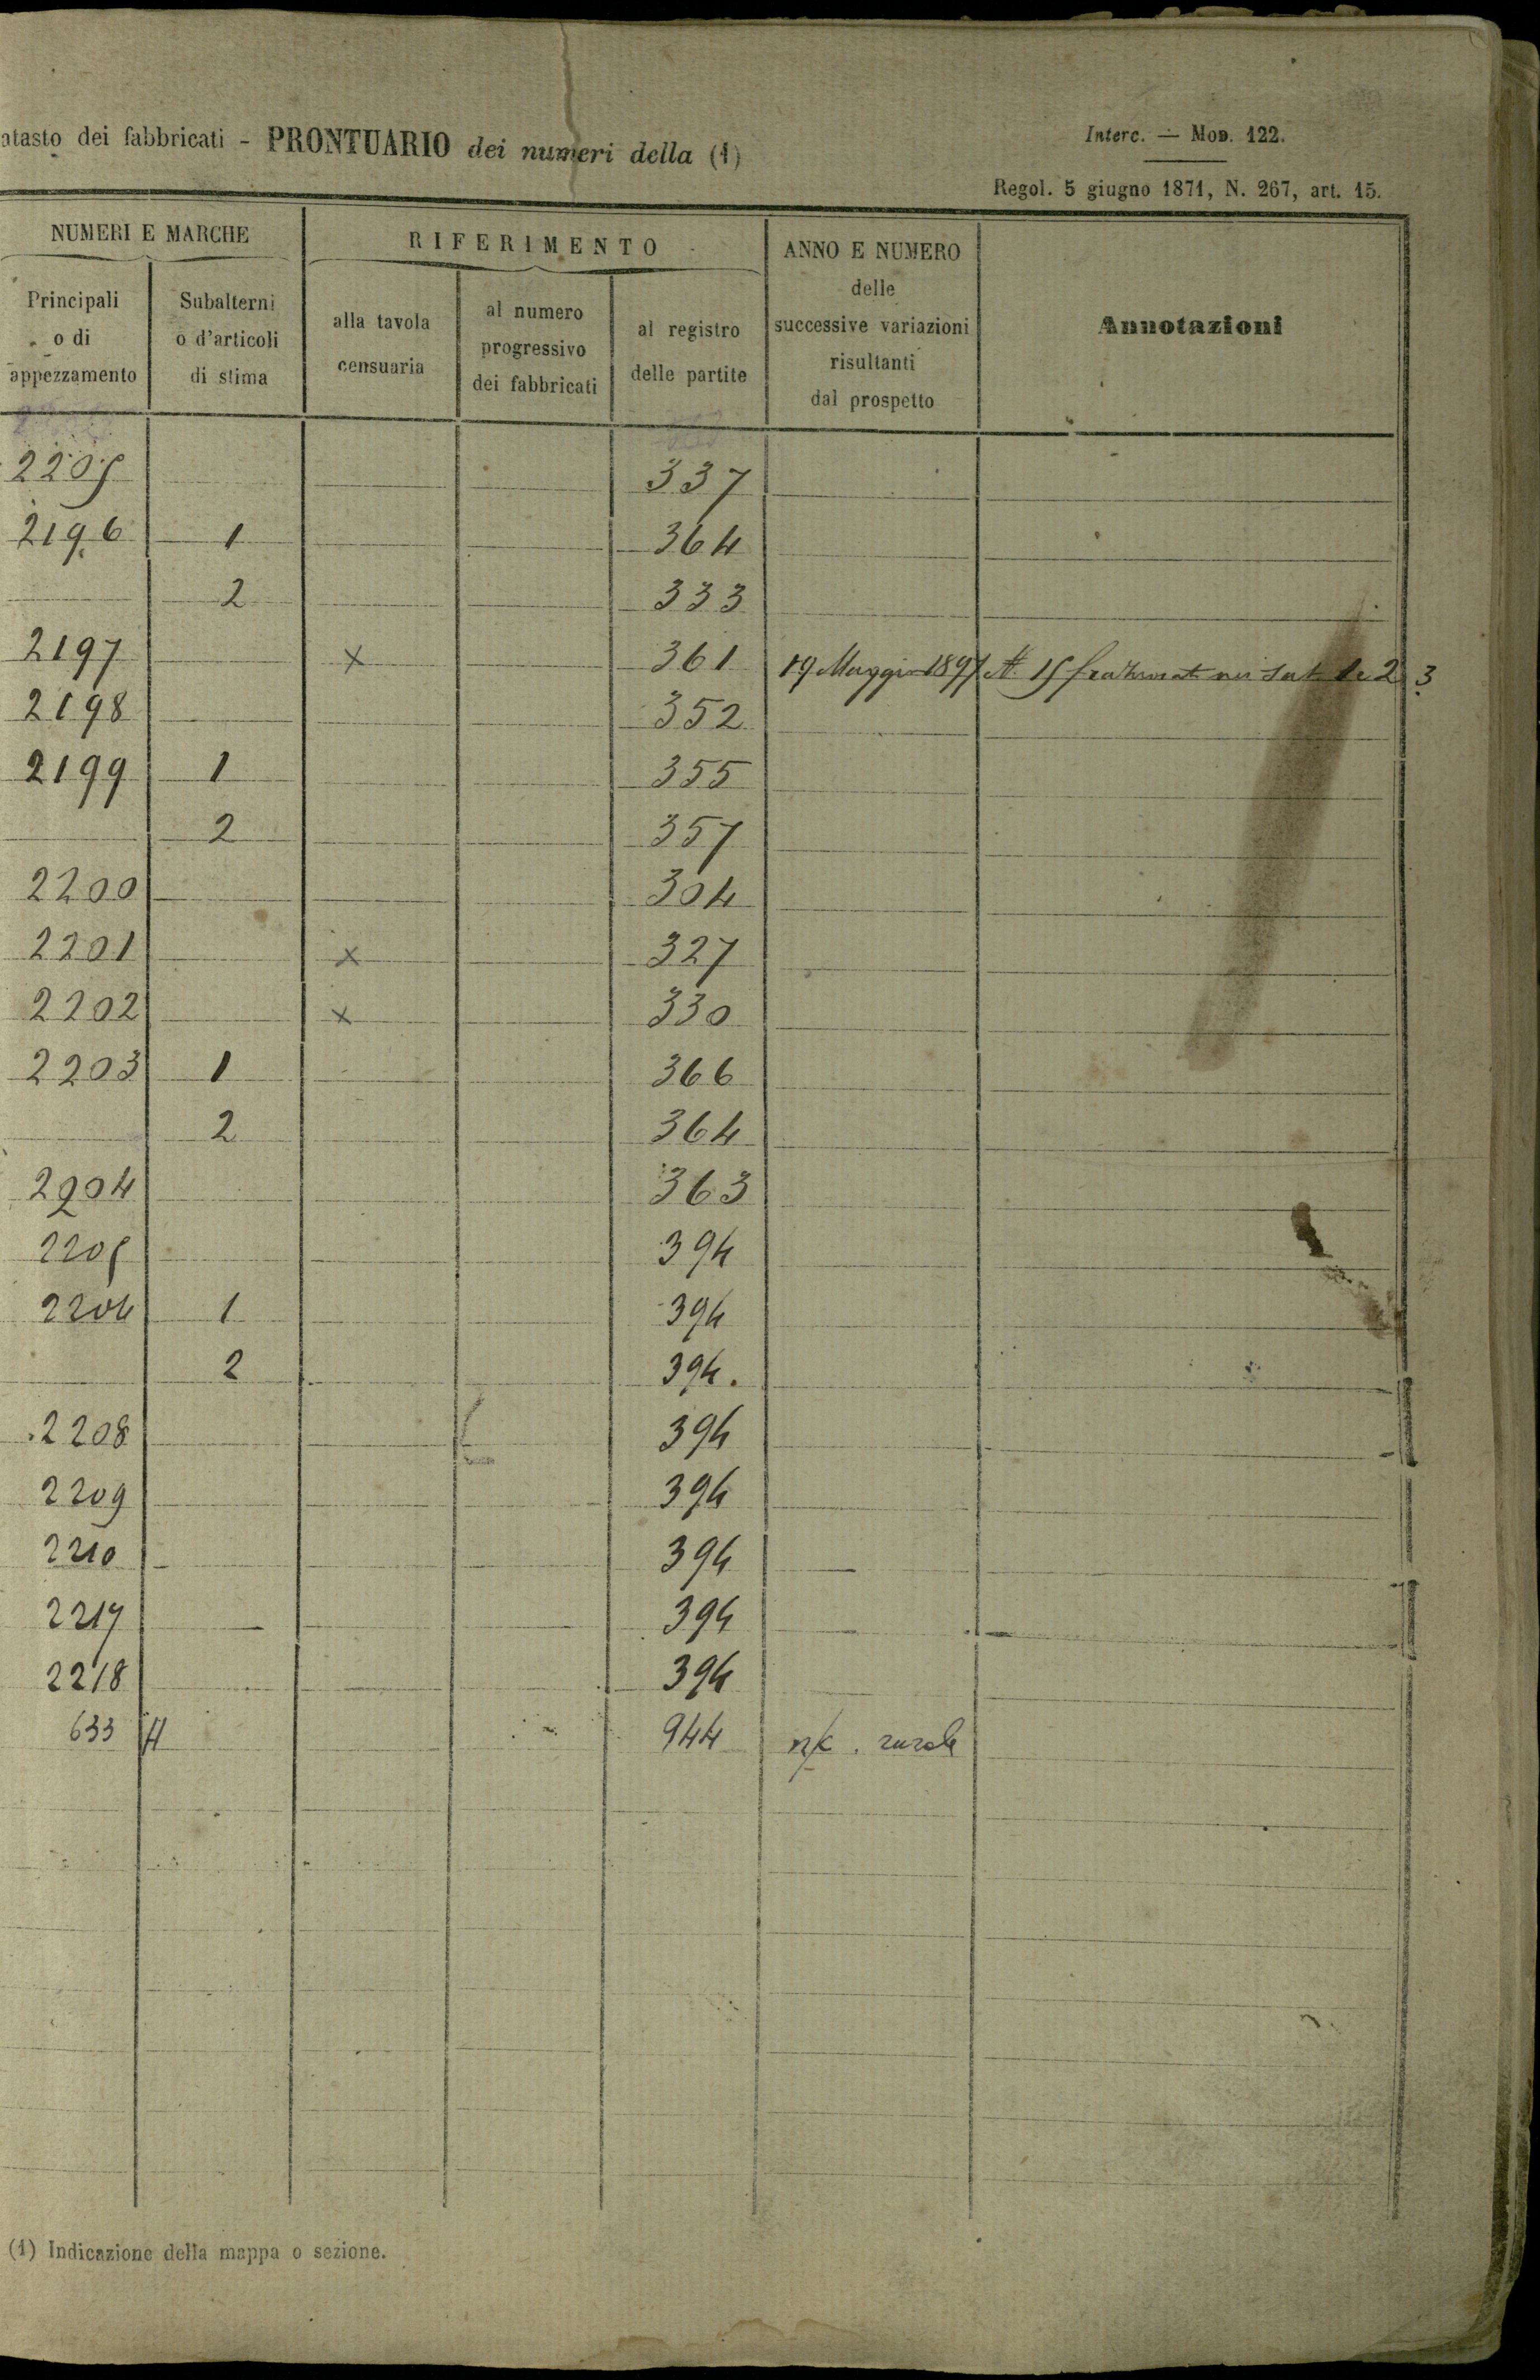 atasto dei fabbricati - PRONTUARIO dei numeri della (1)
Interc. — Mod. 122.
Regol. 5 giugno 1871, N. 267, art. 15.
NUMERI E MARCHE
RIFERIMENTO
ANNO E NUMERO
delle
successive variazioni
risultanti
dal prospetto
Annotazioni
Principali
o di
appezzamento
Subalterni
o d'articoli
di stima
alla tavola
censuaria
al numero
progressivo
dei fabbricati
al registro
delle partite
2205 337
2196 1 364
2 333
2197 x 361 19 Maggio 1897 N. 15 nei sub 1 e 2 3
2198 352
2199 1 355
2 357
2200 304
2201 x 327
2202 x 330
2203 1 366
2 364
2204 363
2205 394
1 394
2 394.
2208 394
2209 394
2210 394
2217 394
2218 394
633 944 rurale
(1) Indicazione della mappa o sezione.